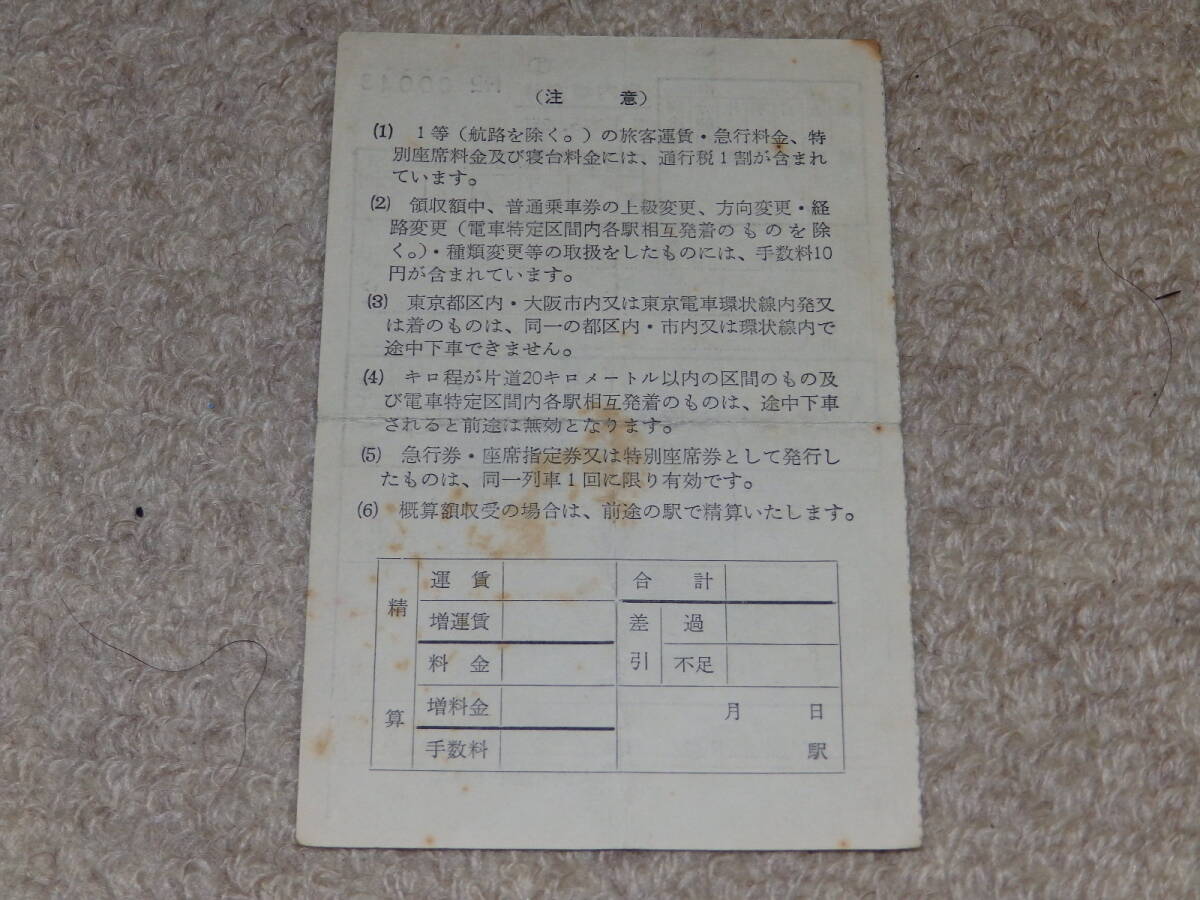 （注　意）
(1)　1等（航路を除く。）の旅客運賃・急行料金、特
別座席料金及び寝台料金には、通行税1割が含まれ
ています。
(2)　領収額中、普通乗車券の上級変更、方向変更・経
路変更（電車特定区間内各駅相互発着のものを除
く。）・種類変更等の取扱をしたものには、手数料10
円が含まれています。
(3)　東京都区内・大阪市内又は東京電車環状線内発又
は着のものは、同一の都区内・市内又は環状線内で
途中下車できません。
(4)　キロ程が片道20キロメートル以内の区間のもの及
び電車特定区間内各駅相互発着のものは、途中下車
されると前途は無効となります。
(5)　急行券・座席指定券又は特別座席券として発行し
たものは、同一列車1回に限り有効です。
(6)　概算額収受の場合は、前途の駅で精算いたします。
精算
運賃
増運賃
料金
増料金
手数料
合計
差引
過
不足
月　日
駅